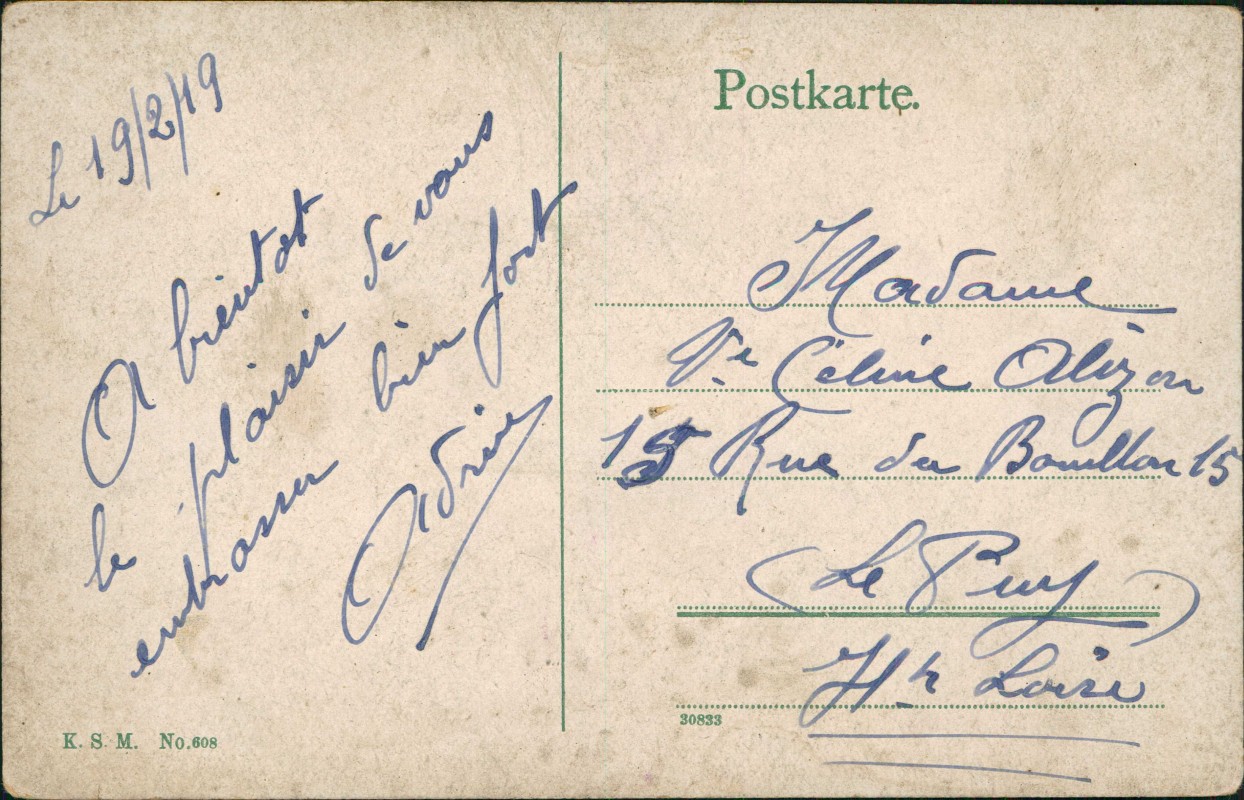 Le 19/2/19
A bientot
le plaisir de vous
embrasser bien fort
Adrien
K. S. M. No.608
Postkarte.
Madame
Ve Céline Alizon
15 Rue du Bouillon 15
(Le Puy)
Hte Loire
30833